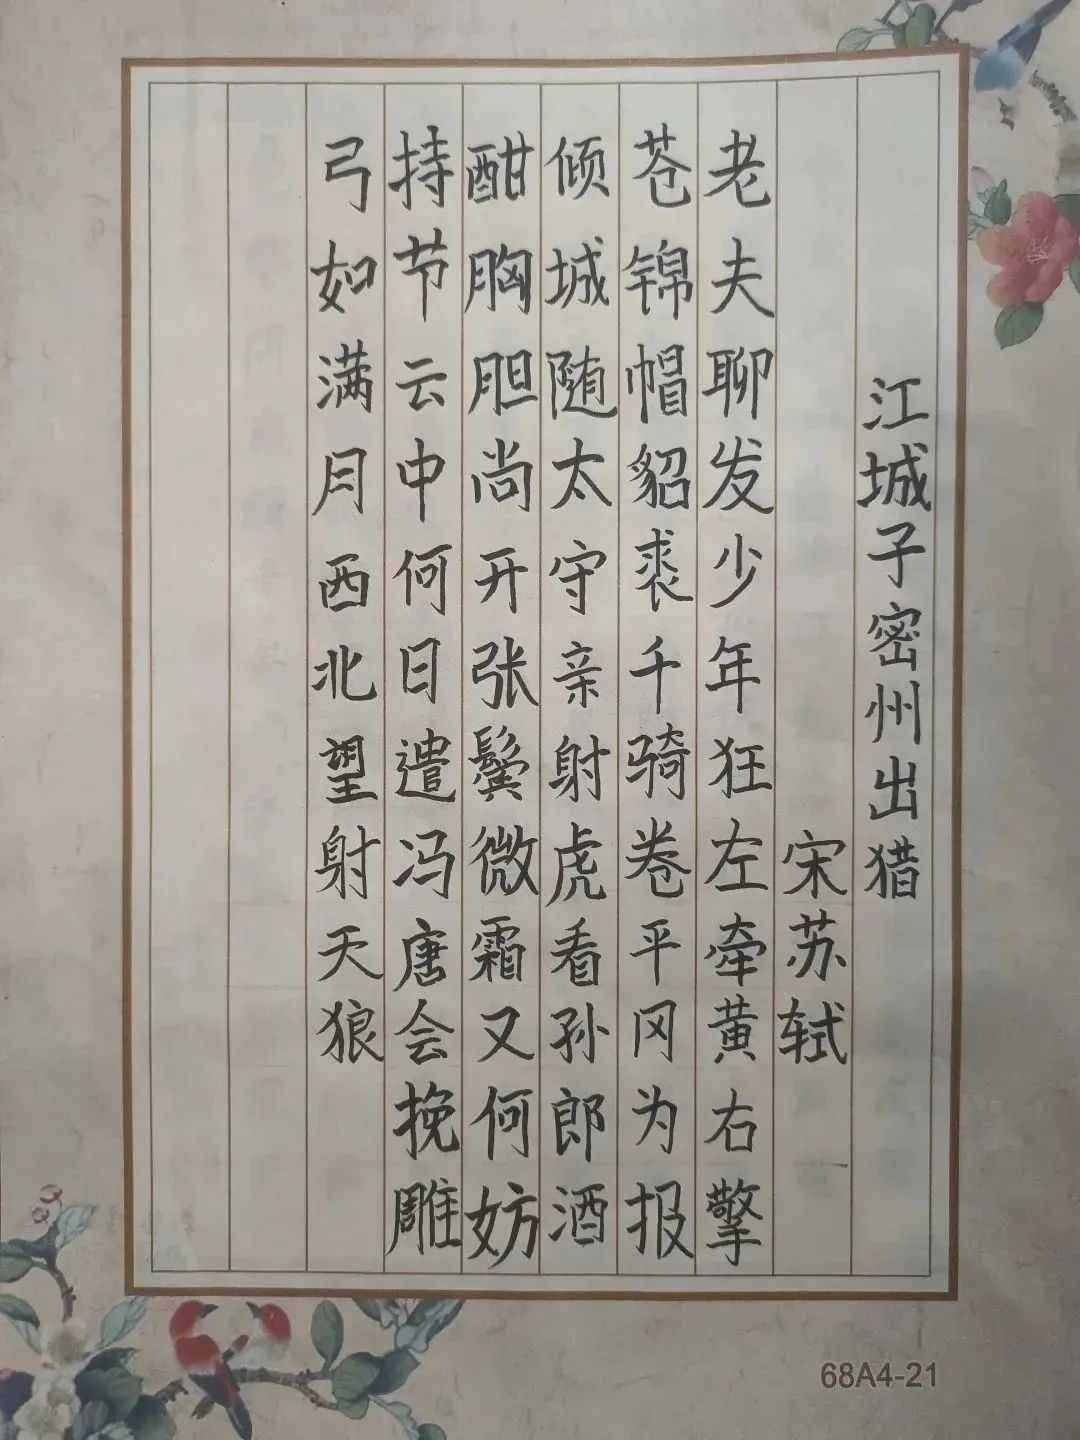 江城子密州出猎
宋苏轼
老夫聊发少年狂左牵黄右擎
苍锦帽貂裘千骑卷平冈为报
倾城随太守亲射虎看孙郎酒
酣胸胆尚开张鬓微霜又何妨
持节云中何日遣冯唐会挽雕
弓如满月西北望射天狼
68A4-21